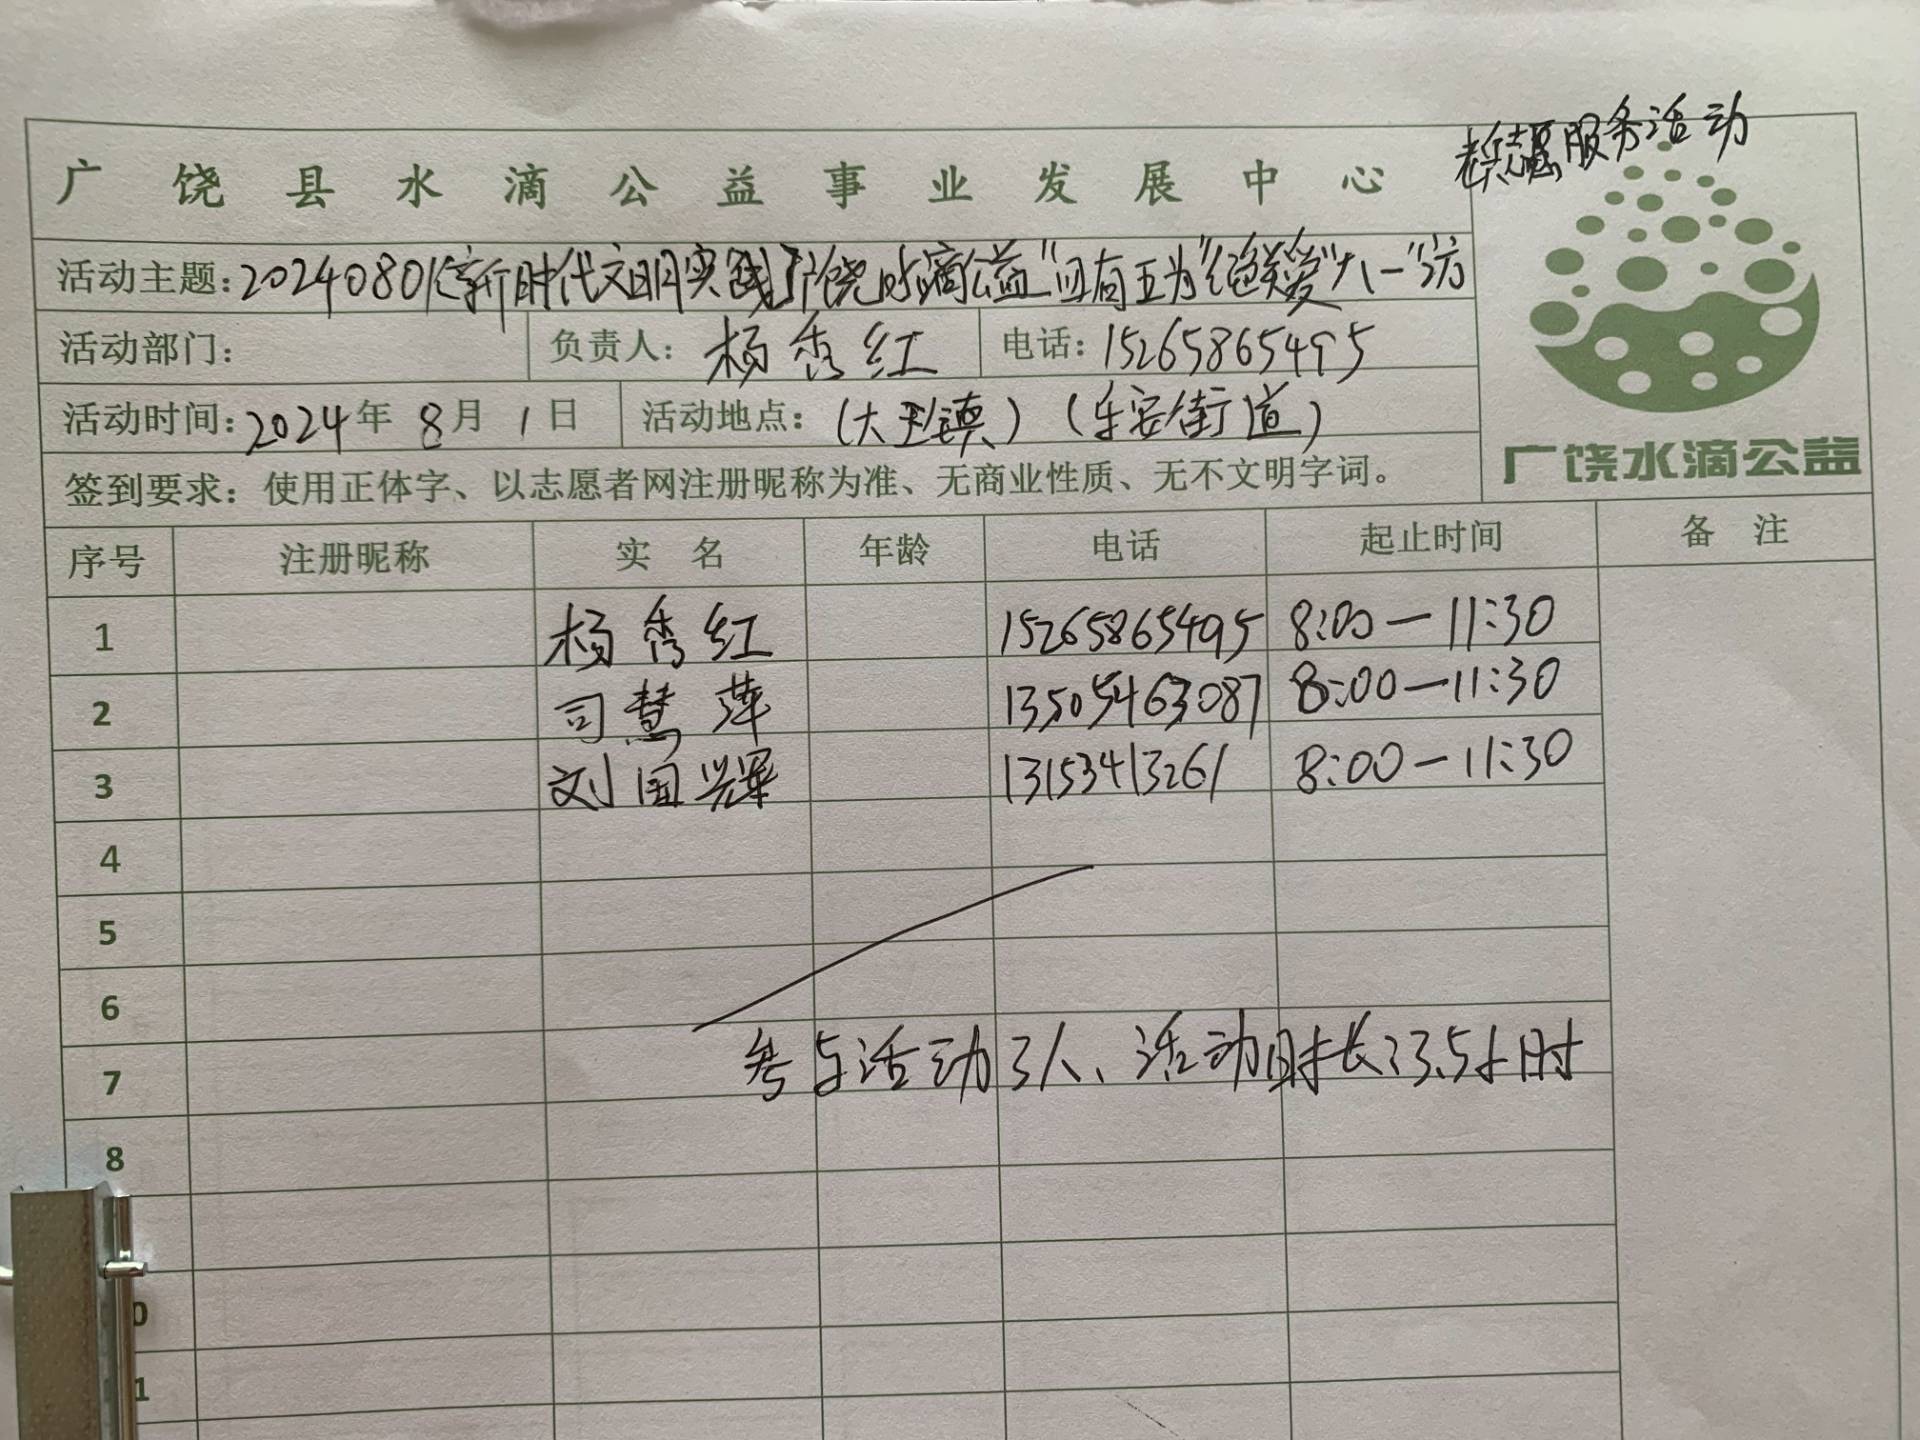 老兵志愿服务活动
广饶县水滴公益事业发展中心
活动主题:20240801(新时代文明实践)广饶水滴公益"四有五为"(绝美爱"八一"访
活动部门: 负责人: 杨秀红 电话: 15265865495
活动时间: 2024年 8月 1日 活动地点: (大王镇) (乐安街道)
签到要求: 使用正体字、以志愿者网注册昵称为准、无商业性质、无不文明字词。
广饶水滴公益
序号 注册昵称 实名 年龄 电话 起止时间 备注
1 杨秀红 15265865495 8:00—11:30
2 司慧萍 13505463087 8:00—11:30
3 刘国辉 13153413261 8:00—11:30
4
5
6
7 参与活动3人、活动时长:3.5小时
8
0
1